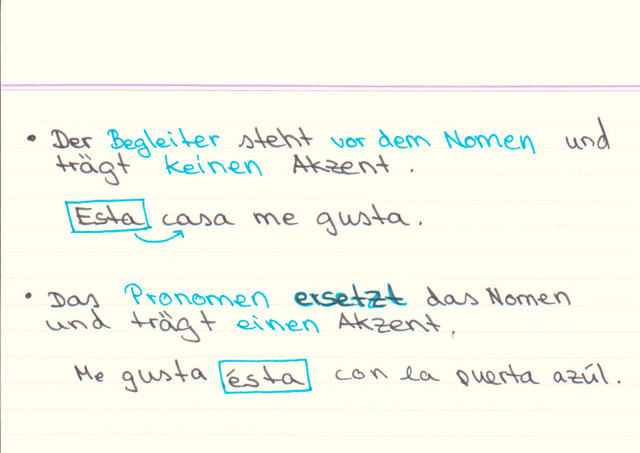 • Der Begleiter steht vor dem Nomen und
trägt keinen Akzent.
Esta casa me gusta.
• Das Pronomen ersetzt das Nomen
und trägt einen Akzent.
Me gusta ésta con la puerta azúl.